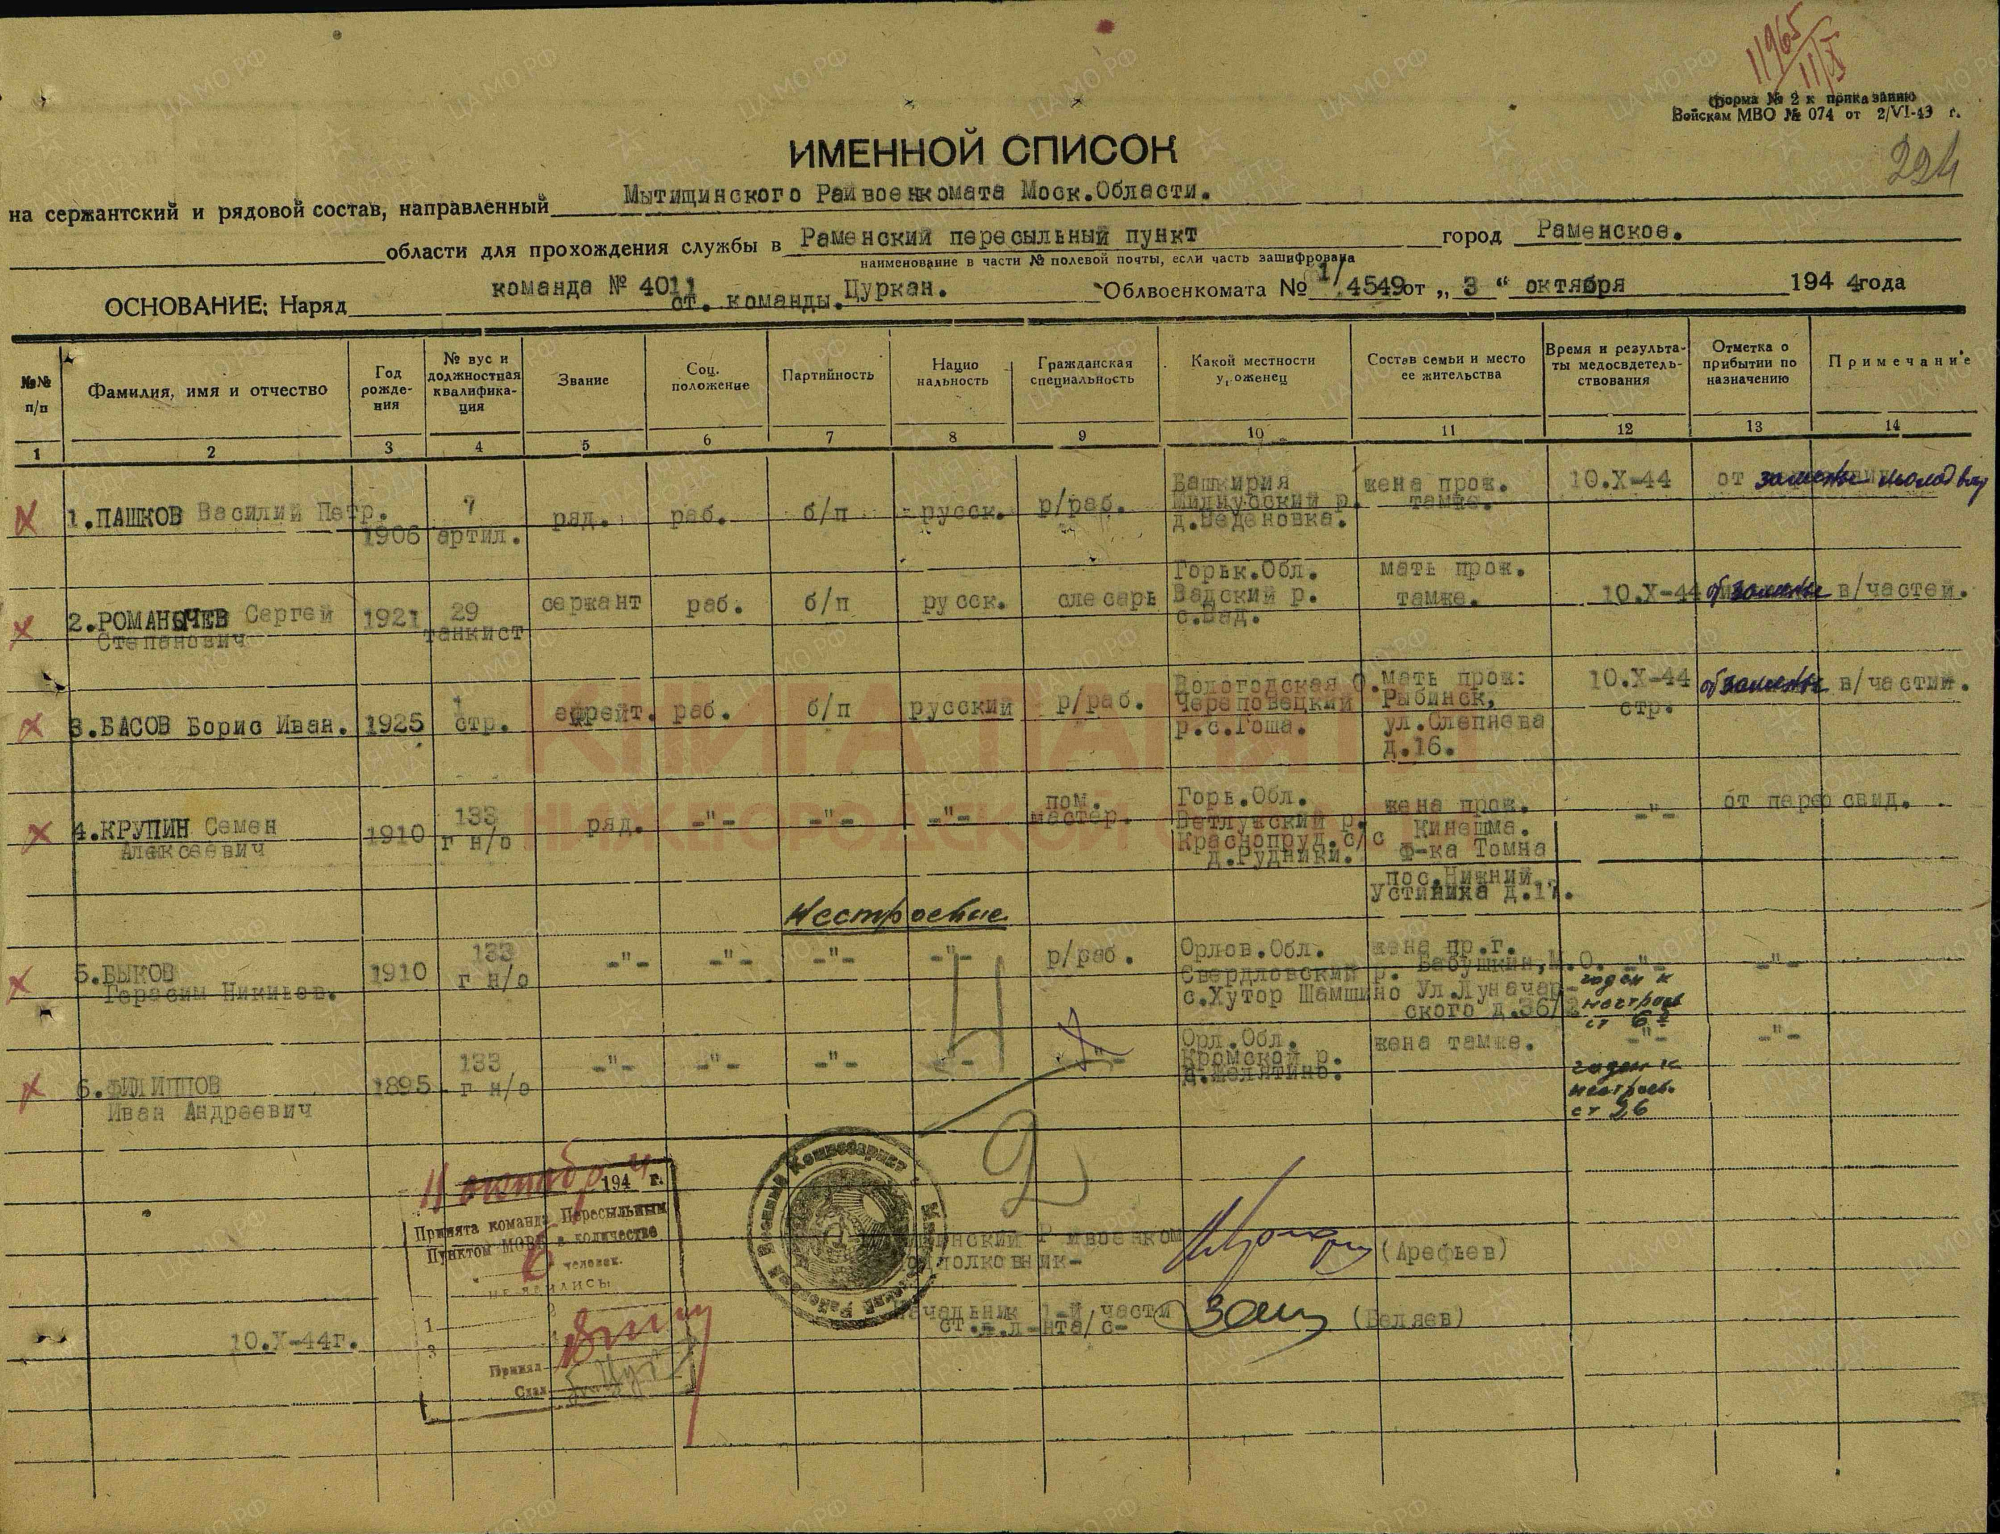 11965
11/X
Форма № 2 к приказанию
Войскам МВО № 074 от 2/VI-43 г.
224
ИМЕННОЙ СПИСОК
на сержантский и рядовой состав, направленный Мытищинского Райвоенкомата Моск.Области.
области для прохождения службы в Раменский пересыльный пункт город Раменское.
наименование в части № полевой почты, если часть зашифрована
ОСНОВАНИЕ: Наряд команда № 4011 ст. команды. Цуркан. Облвоенкомата № 1/4549 от „ 3 “ октября 1944 года
№№ п/п
Фамилия, имя и отчество
Год рождения
№ вус и должностная квалификация
Звание
Соц. положение
Партийность
Нацио нальность
Гражданская специальность
Какой местности уроженец
Состав семьи и место ее жительства
Время и результаты медосвдетельствования
Отметка о прибытии по назначению
Примечание
1 2 3 4 5 6 7 8 9 10 11 12 13 14
1.ПАШКОВ Василий Петр. 1906 7 артил. ряд. раб. б/п русск. р/раб.
Башкирия
д.Веденовка.
жена прож.
тамже.
10.X-44 от
2.РОМАНЫЧЕВ Сергей Степанович 1921 29 танкист сержант раб. б/п русск. слесарь
Горьк.Обл.
Вадский р.
с.Вад.
мать прож.
тамже.
10.X-44 в/частей.
3.БАСОВ Борис Иван. 1925 1 стр. ефрейт. раб. б/п русский р/раб.
Вологодская О.
Череповецкий
р.с.Гоша.
мать прож:
Рыбинск,
ул.Слепнева
д.16.
10.X-44
стр.
в/частий.
4.КРУПИН Семен Алексеевич 1910 133 г н/о ряд. -"- -"- -"- пом. мастер.
Горь.Обл.
Ветлужский р.
Краснопруд.с/с
д.Рудники.
жена прож.
Кинешма.
Ф-ка Томна
пос.Нижний
Устиниха д.17.
-"- от пере свид.
Нестроевые
5.БЫКОВ Герасим Никифов. 1910 133 г н/о -"- -"- -"- -"- р/раб.
Орлов.Обл.
Свердловский р.
с.Хутор Шамшино
жена пр.г.
Бабушкин,М.О.
Ул.Луначар-
ского д.36/2
-"- -"-
годен к
нестроев
6.ФИЛИППОВ Иван Андреевич 1895 133 г н/о -"- -"- -"- -"- -"-
Орл.Обл.
Кромской р.
д.Желятино.
жена тамже.
-"- -"-
годен к
нестроев.
ст 26
Н
2
11 октябр 1944 г.
Принята команда Пересыльным
Пунктом МОВК в количестве
6 человек.
НЕ ЯВИЛИСЬ
1
2
3
Принял
Сдал
10.X-44г.
Военный Комиссариат
Райвоенком
подполковник- (Арефьев)
Начальник 1-й части
ст.л-нта/с- (Беляев)
КНИГА ПАМЯТИ
НИЖЕГОРОДСКОЙ ОБЛАСТИ
ЦА МО РФ
ПАМЯТЬ НАРОДА